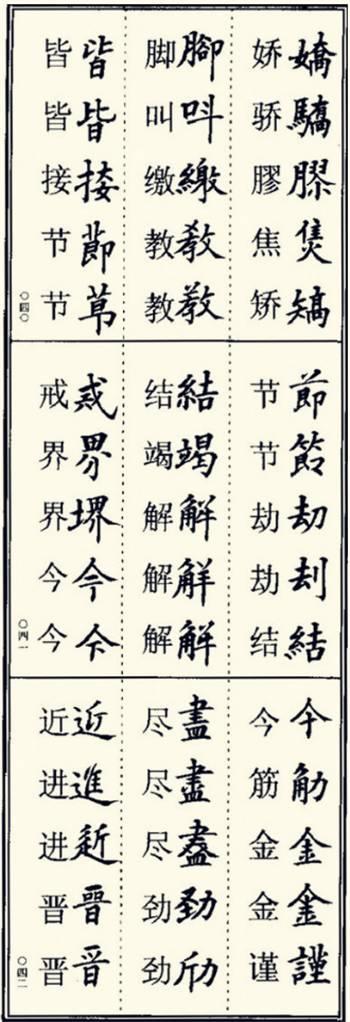 嬌驕膠焦矯
娇骄膠焦矫
腳呌繳教教
脚叫缴教教
皆皆接節莭
皆皆接节节
〇四〇
節節劫刧結
节节劫劫结
結竭解觧解
结竭解解解
戒界堺今今
戒界界今今
〇四一
今筋金金謹
今筋金金谨
盡盡盡勁
尽尽尽劲劲
近進進晉晉
近进进晋晋
〇四二